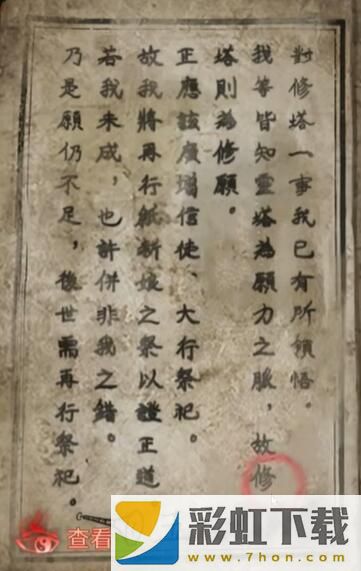 對修塔一事我已有所領悟。
我等皆知靈塔為願力之脈，故修
塔則為修願。
正應該廣增信使、大行祭祀。
故我將再行紙新娘之祭以證正道
若我未成，也許併非我之錯。
乃是願仍不足，後世需再行祭祀。
查看
彩虹下载
www.7hon.com